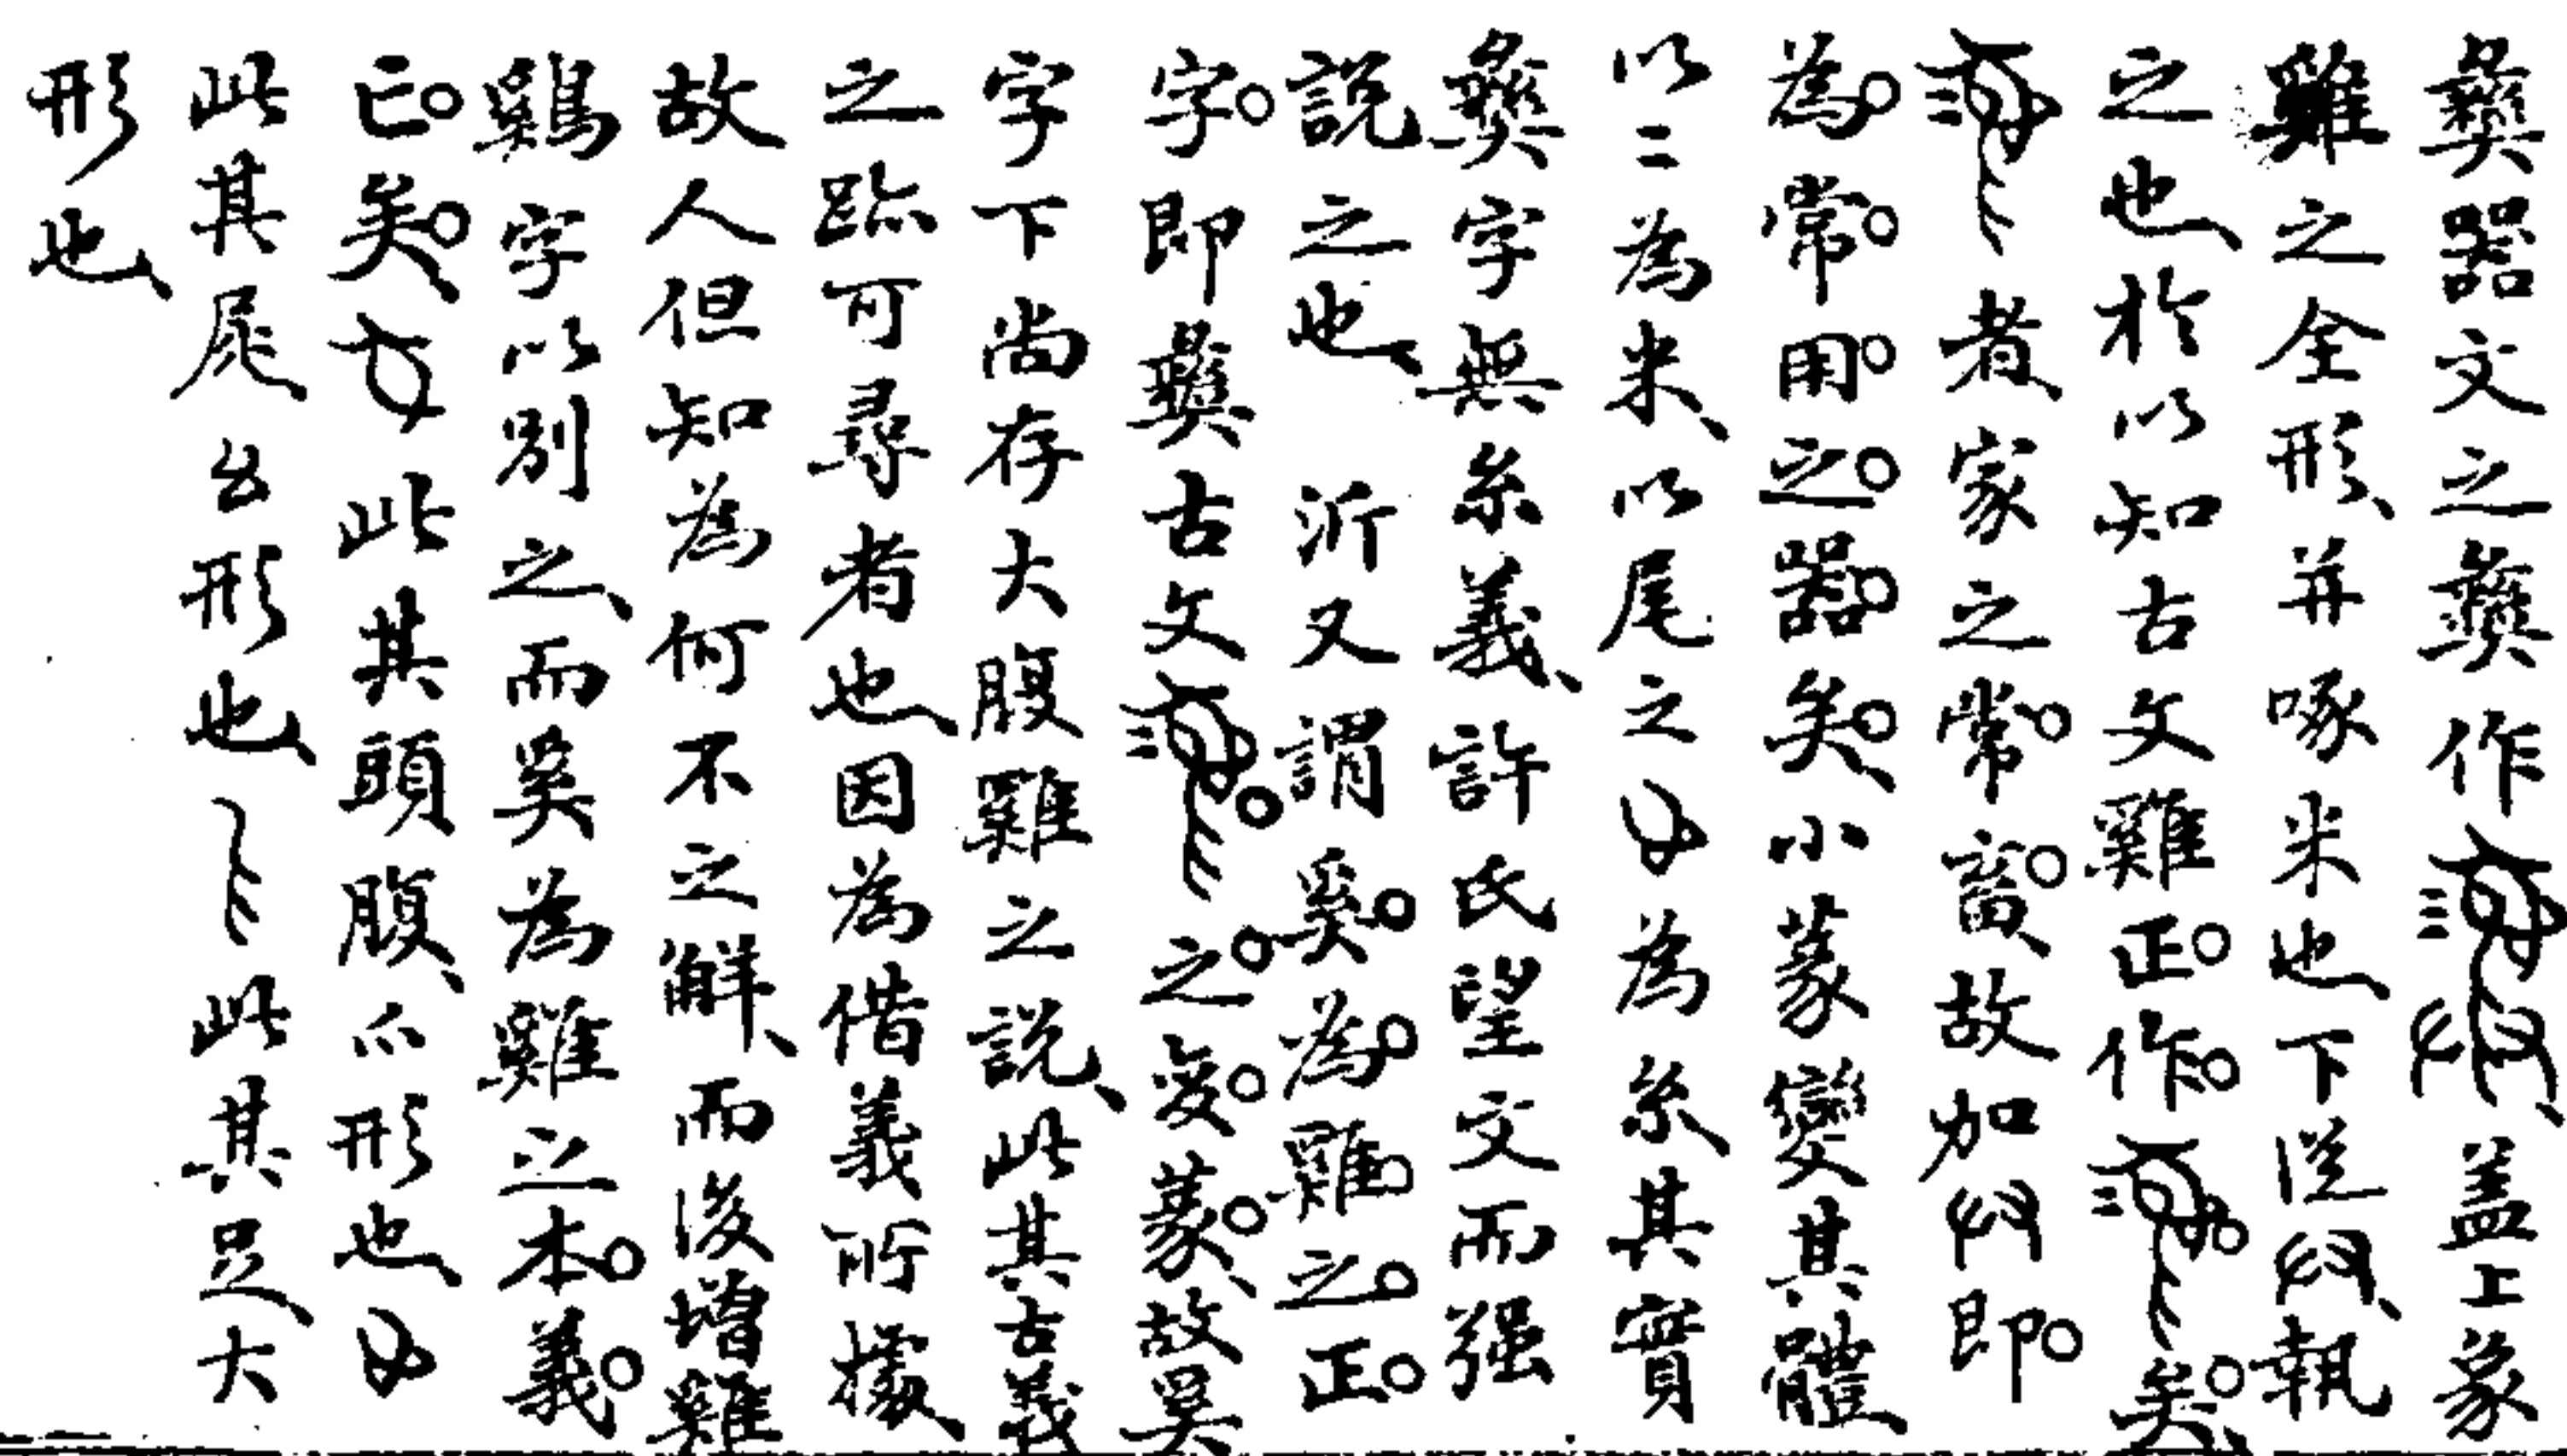 彝器文之彝作蓋上象
雞之全形、并啄米也、下從執
之也、於以知古文雞正作矣、
者家之常畜、故加即
為常用之器矣、小篆變其體
以二為米、以尾之為糸、其實
彝字無糸義、許氏望文而强
說之也、沂又謂奚為雞之正
字即彝古文之變篆、故奚
字下尚存大腹雞之說、此其古義
之跡可尋者也、因為借義所據、
故人但知為何不之解、而後增雞
鷄字以別之、而奚為雞之本義
亡矣、此其頭腹、爪形也、
此其尾形也、此其足、大
形也、